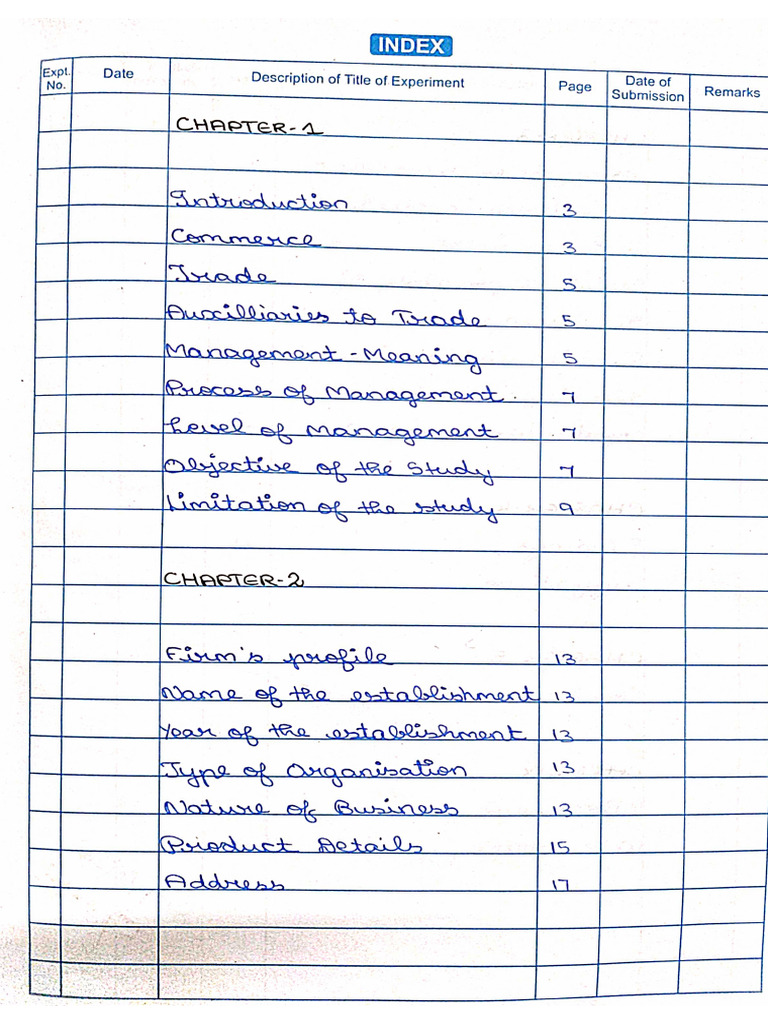 INDEX
Expt. No. Date Description of Title of Experiment Page Date of Submission Remarks
CHAPTER-1
Introduction 3
Commerce 3
Trade 5
Auxcilliaries to Trade 5
Management - Meaning 5
Process of Management. 7
Level of Management 7
Objective of the Study 7
Limitation of the study 9
CHAPTER-2
Firm's profile 13
Name of the establishment 13
Year of the establishment 13
Type of Organisation 13
Nature of Business 13
Product Details 15
Address 17